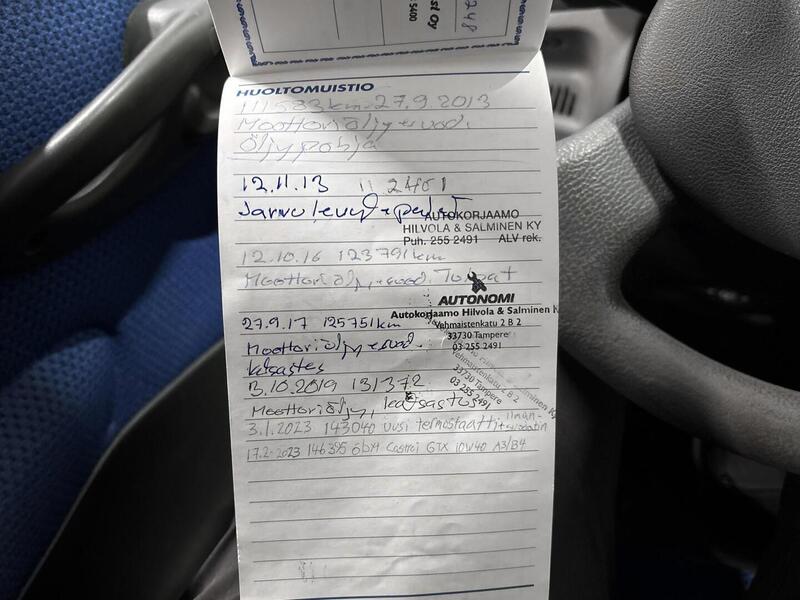 248
st Oy
5400
HUOLTOMUISTIO
111583 km 27.9.2013
Moottoriöljy+suod.
Öljypohja
12.11.13 112461
Jarrulevyt+palat
AUTOKORJAAMO
HILVOLA & SALMINEN KY
Puh. 255 2491 ALV rek.
12.10.16 123791km
Moottoriöljy+suod. Tulpat
AUTONOMI
Autokorjaamo Hilvola & Salminen K
Vehmaistenkatu 2 B 2
33730 Tampere
03 255 2491
27.9.17 125751km
Moottoriöljy+suod.
katsastus
Vehmaistenkatu 2 B 2
33730 Tampere
03 255 2491
3.10.2019 131372
Moottoriöljy, katsastus
3.1.2023 143040 uusi termostaatti + ilman-
suodatin
17.2.2023 146395 öbyt Castrol GTX 10W40 A3/B4